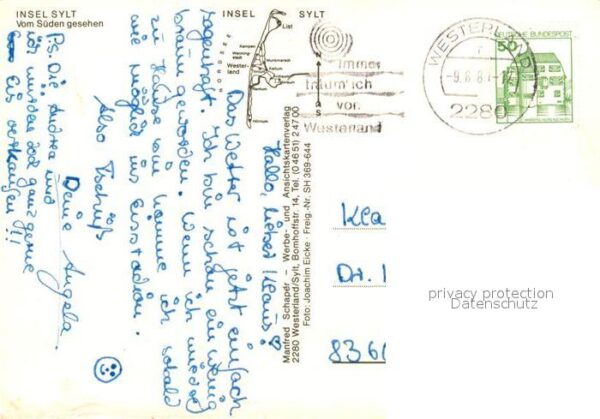 INSEL SYLT
Vom Süden gesehen
INSEL SYLT
List
Kampen
Wenningstedt
Westerland
Munkmarsch
Keitum
Hörnum
N
S
Immer
träum' ich
von
Westerland
WESTERLAND
-9.6.8
2280
DEUTSCHE BUNDESPOST
50
Hallo, lieber Klaus! ♡
Das Wetter ist jetzt einfach
sagenhaft. Ich bin schon ein wenig
braun geworden. Wenn ich wieder
zu Hause bin komme ich sobald
wie möglich ins Eisstadion.
Also Tschüß
Deine Angela.
P.S. Die Andrea und
ich würden zod ganz gerne
Eis verkaufen !!!
Manfred Schaper – Werbe- und Ansichtskartenverlag
2280 Westerland/Sylt, Bomhoffstr. 14, Tel. (0 46 51) 2 47 00
Foto: Joachim Eicke Freig.-Nr. SH 369-644
Kla
Dr. 
836
privacy protection
Datenschutz